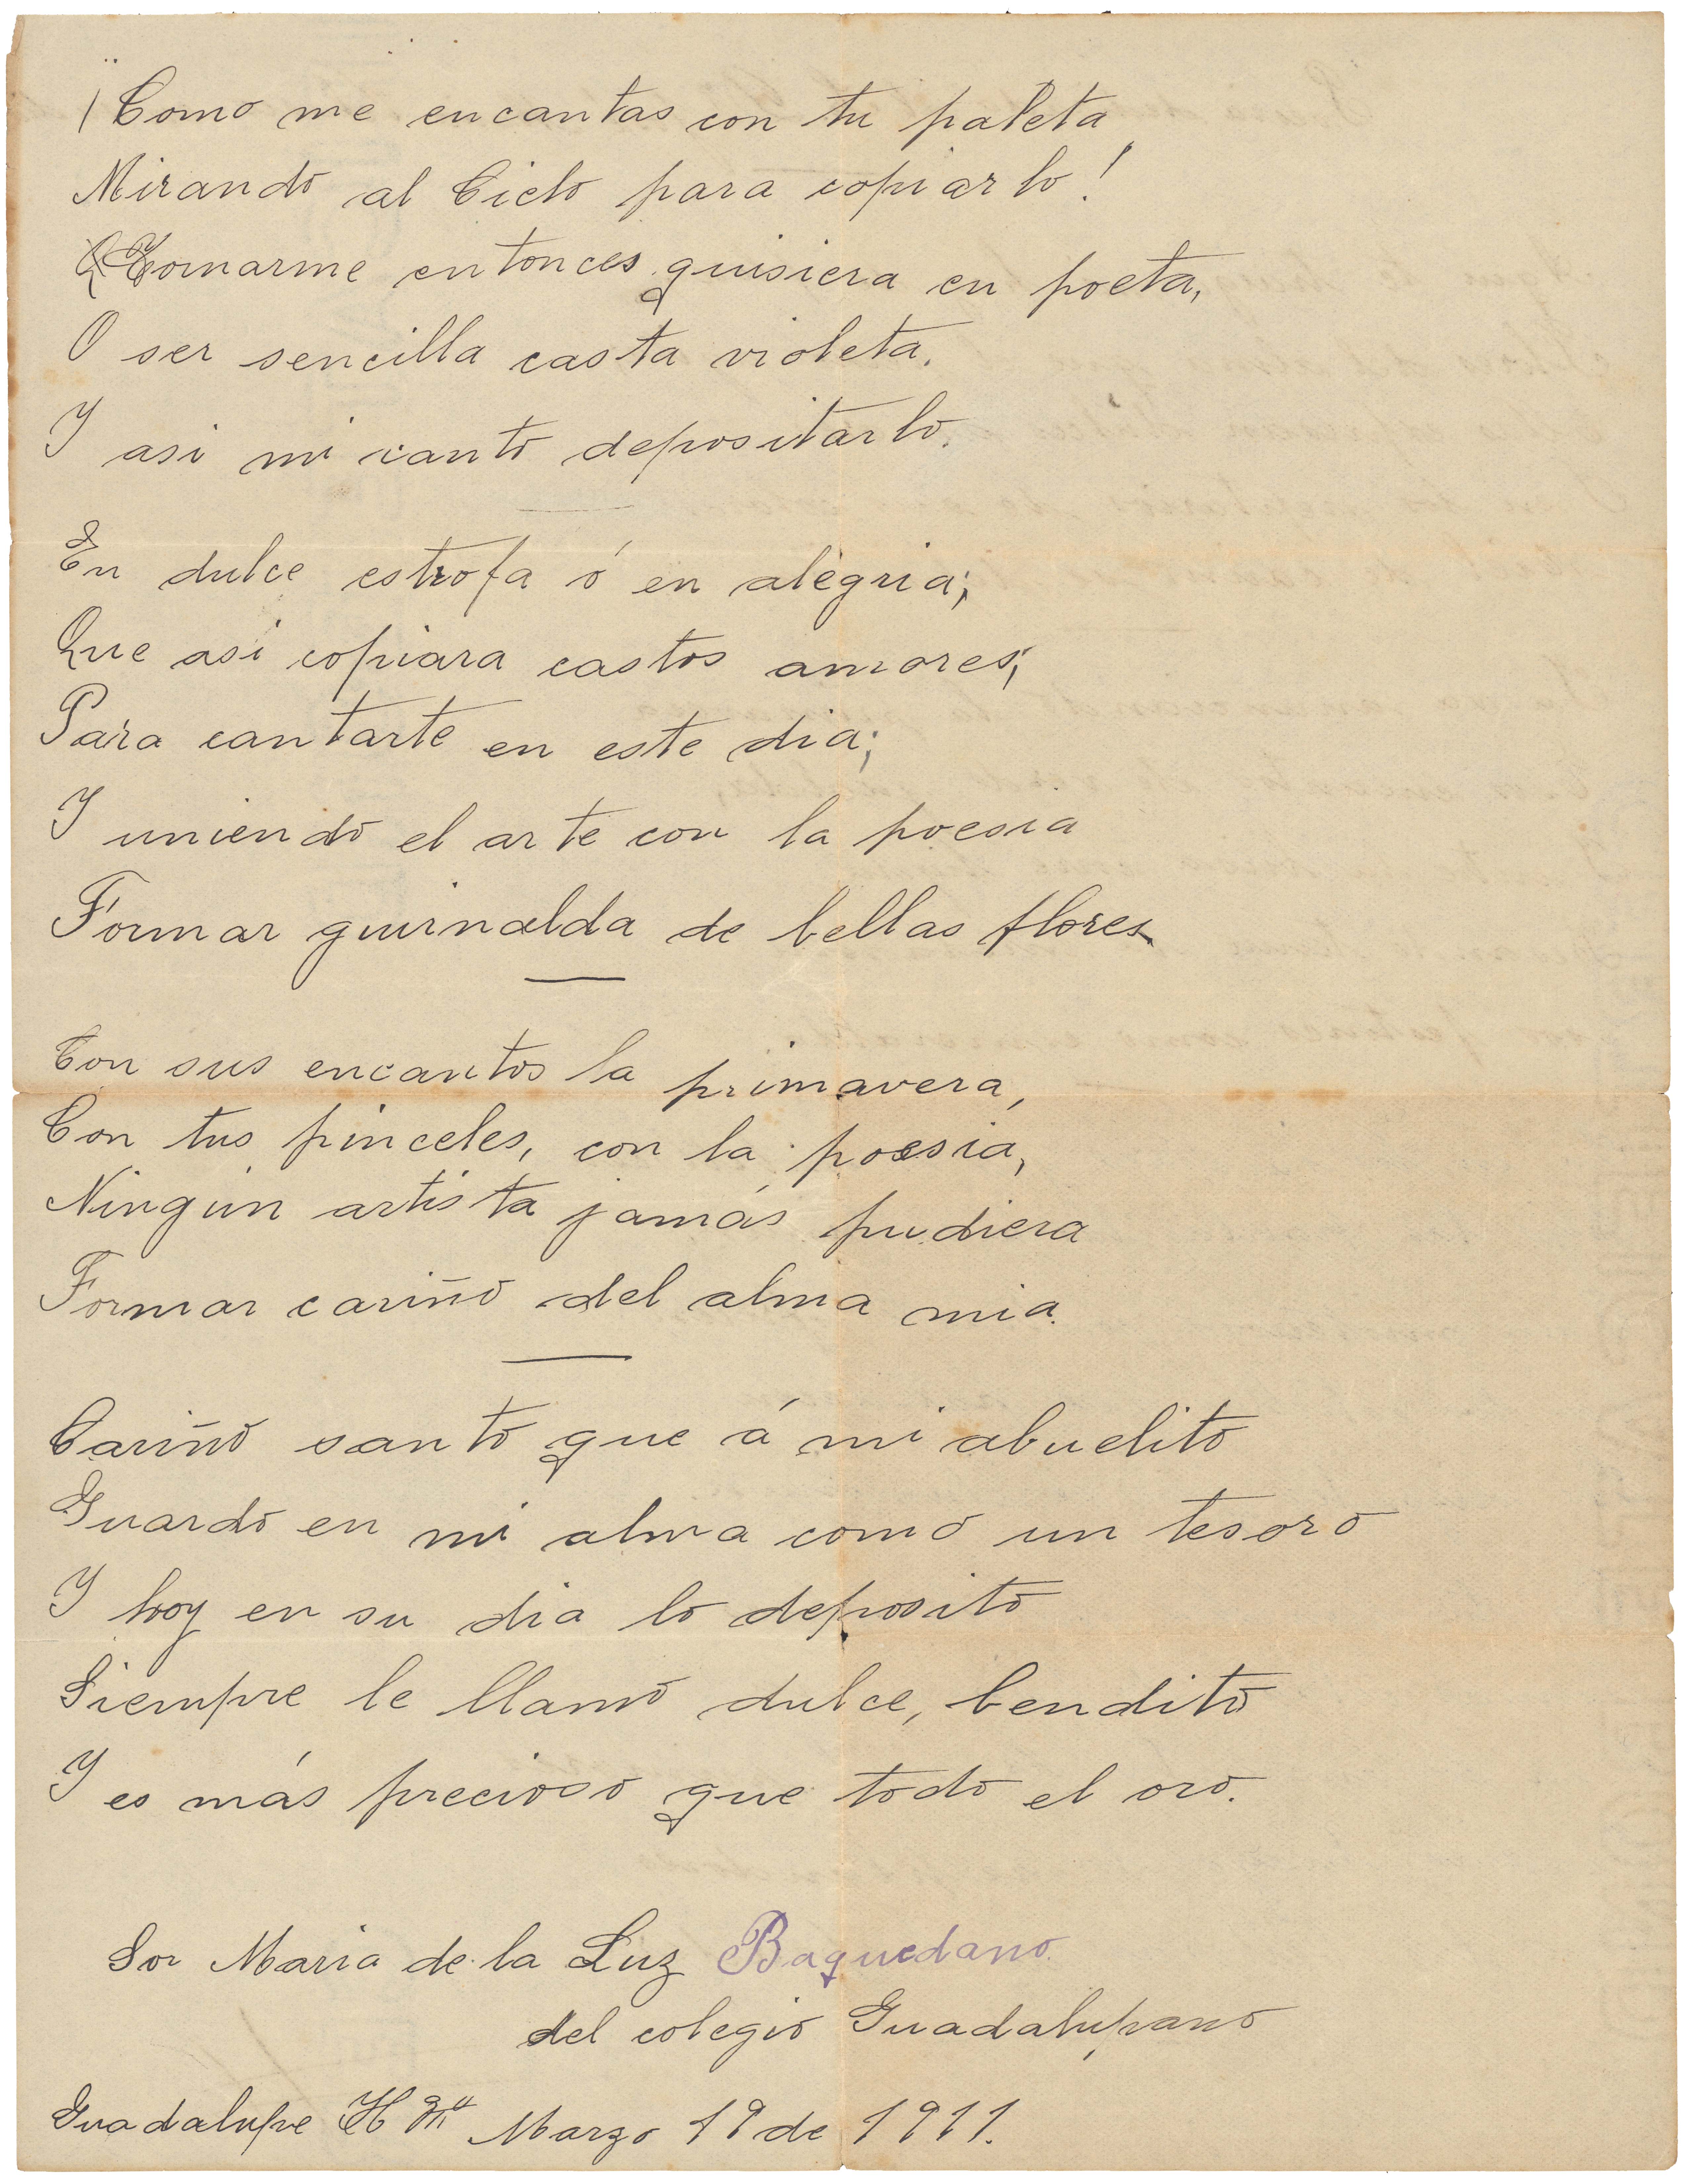 ¡Como me encantas con tu paleta
Mirando al Cielo para copiarlo!
Tornarme entonces quisiera en poeta,
O ser sencilla casta violeta.
Y asi mi canto depositarlo.
En dulce estrofa ó en alegria;
Que asi copiara castos amores;
Para cantarte en este dia;
Y uniendo el arte con la poesia
Formar guirnalda de bellas flores
Con sus encantos la primavera,
Con tus pinceles, con la poesia,
Ningun artista jamás pudiera
Formar cariño del alma mia.
Cariño santo que á mi abuelito
Guardo en mi alma como un tesoro
Y hoy en su dia lo deposito
Siempre le llamo dulce, bendito
Y es más precioso que todo el oro.
Sor Maria de la Luz Baquedano.
del colegio Guadalupano
Guadalupe H Marzo 19 de 1911.